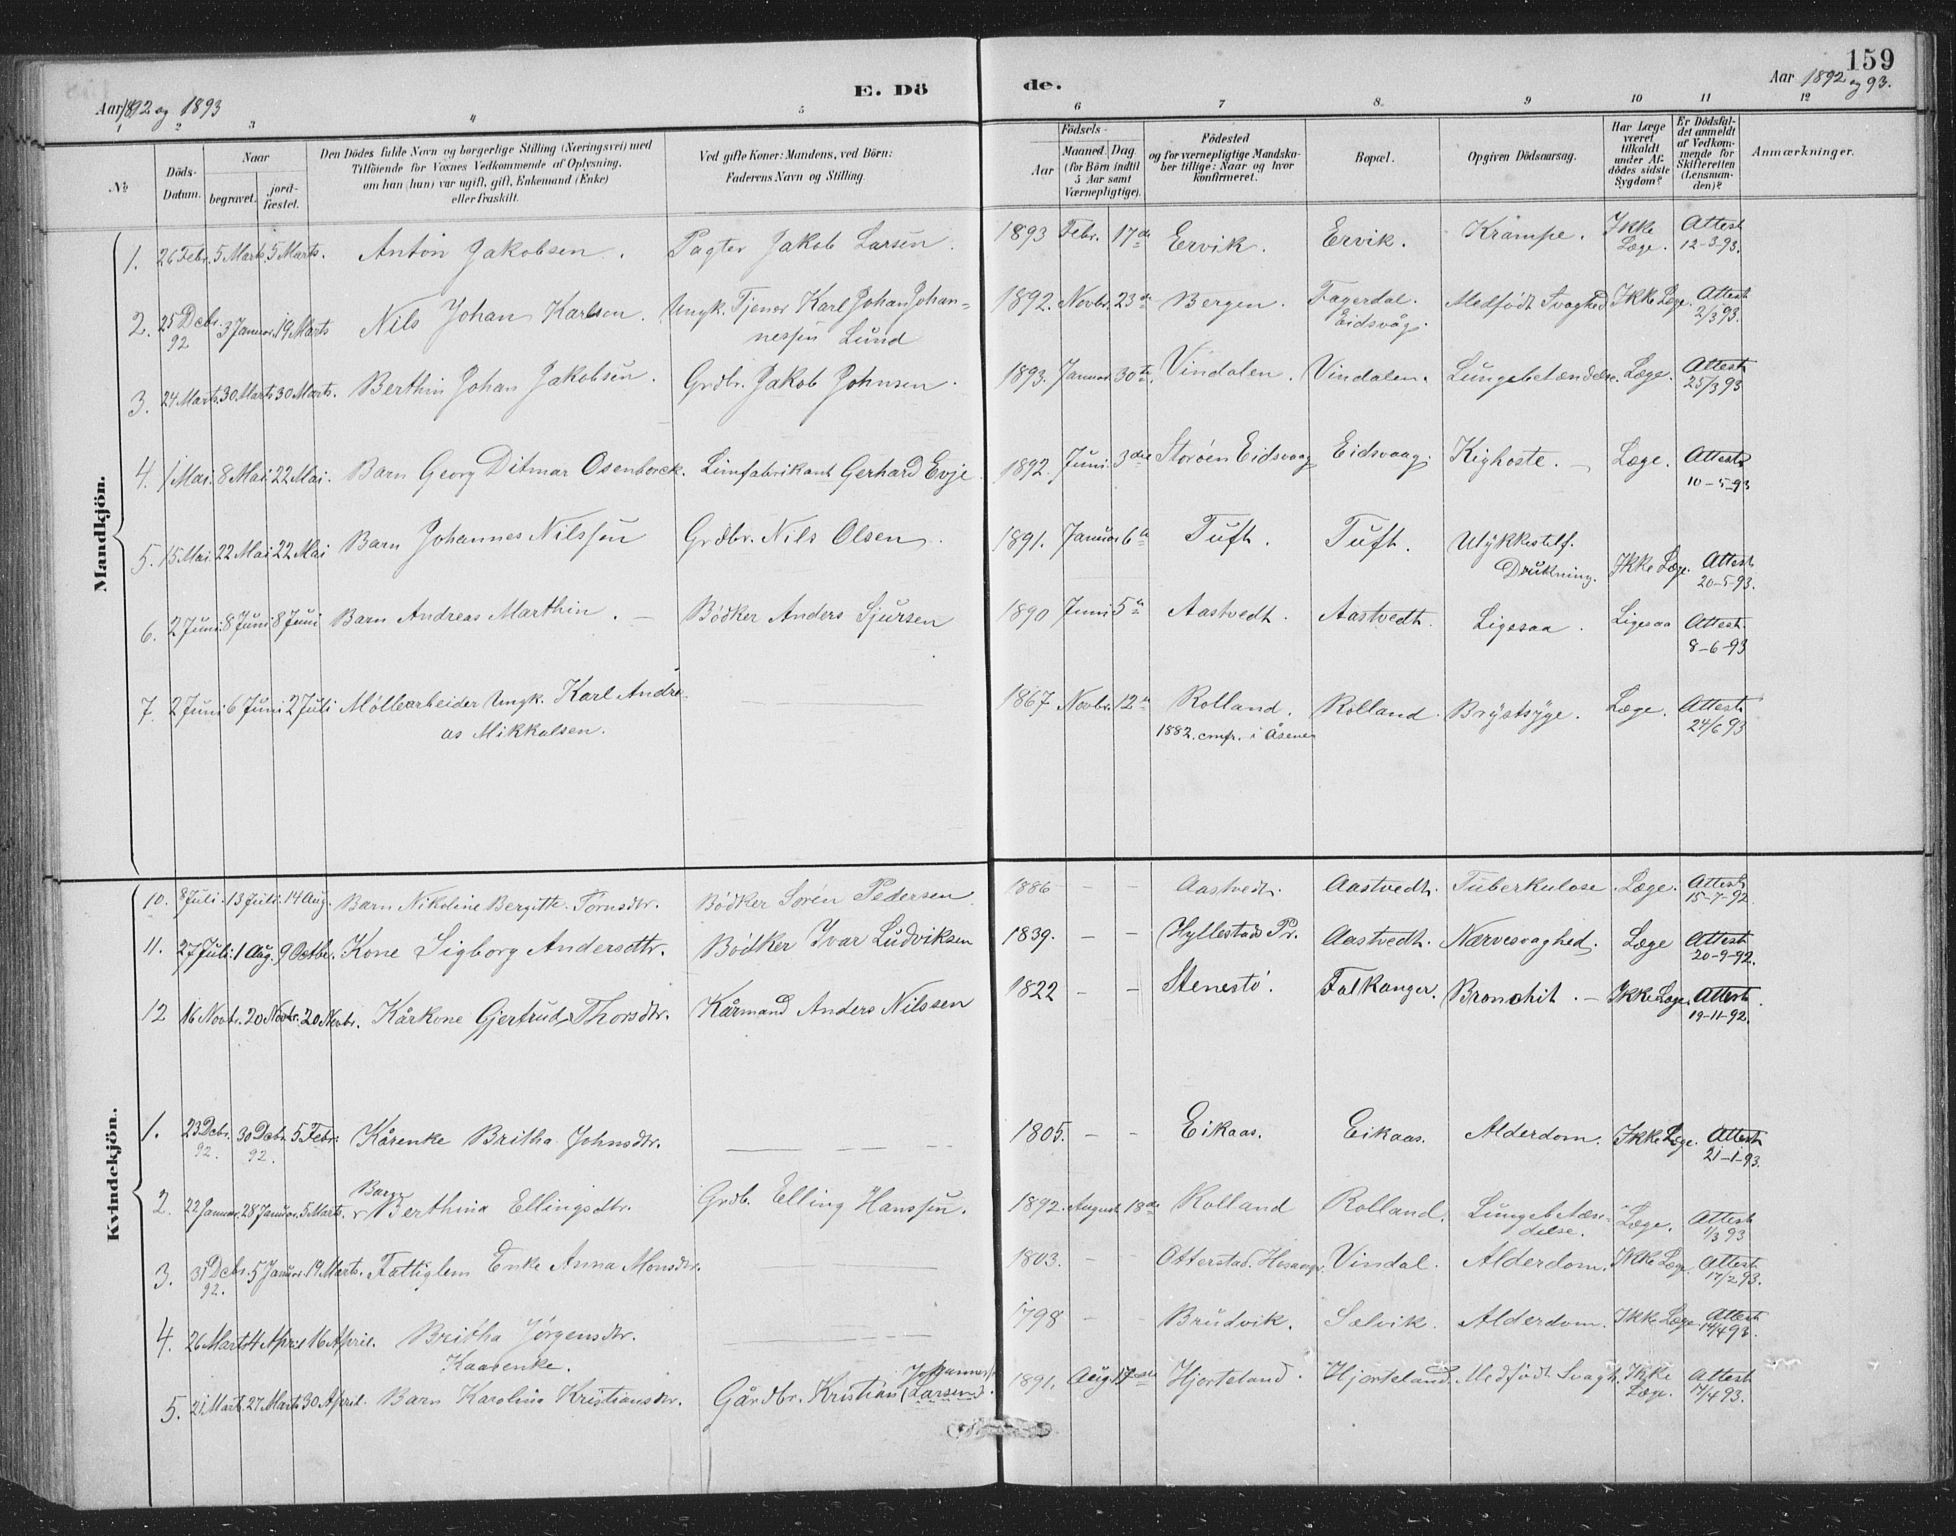 159
Aar 1892 og 1893
E. Dö de.
Aar 1892 og 93.
1 2 3 4 5 6 7 8. 9 10 11 12
№
Döds-Datum.
Naar
begravet.
jord-fæstet.
Den Dödes fulde Navn og borgerlige Stilling (Næringsvei) med
Tilföiende for Voxnes Vedkommende af Oplysning,
om han (hun) var ugift, gift, Enkemand (Enke)
eller fraskilt.
Ved gifte Koner: Mandens, ved Börn:
Faderens Navn og Stilling.
Födsels-
Aar
Maaned Dag
(for Börn indtil
5 Aar samt
Værnepligtige).
Födested
og for værnepligtige Mandska-
ber tillige: Naar og hvor
konfirmeret.
Bopæl.
Opgiven Dödsaarsag.
Har Læge
været
tilkaldt
under Af-
dödes sidste
Sygdom?
Er Dödsfal-
det anmeldt
af Vedkom-
mende for
Skifteretten
(Lensman-
den)?
Anmærkninger.
Mandkjön.
1. 26 Febr. 5 Marts. 5 Marts. Anton Jakobsen. Pagter Jakob Larsen. 1893 Febr. 17de Ervik. Ervik. Krampe. Ikke Læge. Attest 12-3-93.
2. 25 Dcbr. 92 3 Januar. 19 Marts Nils Johan Karlsen. Ungk. Tjener Karl Johan Johan=
nessen Lund 1892. Novbr. 23de Bergen. Fagerdal. Eidsvåg. Medfødt Svaghed Ikke Læge. Attest 2/3 93.
3. 24 Marts. 30 Marts 30 Marts. Berthin Johan Jakobsen. Grdbr. Jakob Johnsen. 1893. Januar 30te. Vindalen. Vindalen. Lungebetændelse. Læge. Attest 25/3 93
4. 1 Mai. 8 Mai. 22 Mai. Barn Georg Ditmar Osenbrock. Limfabrikant Gerhard Evje. 1892. Juni 3die Storøen Eidsvaag Eidsvaag. Kighoste. — Læge. Attest 10-5-93
5. 15 Mai. 22 Mai 22 Mai Barn Johannes Nilssen Grdbr. Nils Olsen. 1891. Januar 6te Tuft. Tuft. Ulykkestilf. Drukning. Ikke Læge. Attest 20-5-93.
6. 2 Juni 8 Juni 8 Juni Barn Andreas Marthin. — Bødker Anders Sjursen 1890 Juni 5te Aastvedt. Aastvedt. Ligesaa. Ligesaa Attest. 8-6-93
7. 2 Juni 6 Juni 2 Juli Møllearbeider Ungk. Karl Andre
as Mikkalsen. 1867 Novbr. 12te Rolland. 1882. cmfr. i Åsene Rolland. Brystsyge. Læge. Attest 24/6 93
Kvindekjön.
10. 8 Juli. 13 Juli. 14 Aug. Barn Nikoline Bergitte Børnsdtr. Bødker Sørén Pedersen 1886 — — Aastvedt. Aastvedt. Tuberkulose. Læge. Attest 15-7-92
11. 27 Juli. 1 Aug. 9 Octbr. Kone Sigborg Andersdttr. Bødker Ivar Ludviksen 1839. — — Hyllestads Pr. Aastvedt. Nærvesvaghed. Læge Attest 20-9-92.
12 16 Novbr. 20 Novbr. 20 Novbr. Kårkone Gjertrud Thorsdtr. Kårmand Anders Nilssen 1822 — — Stenestø. Falkanger. Bronchit. — Ikke Læge. Attest. 19-11-92.
1. 23 Dcbr. 92. 30 Dcbr. 92. 5 Febr. Kårenke Britha Johnsdtr. 1805. — — Eikaas. Eikaas. Alderdom. Ikke Læge. Attest 21-1-93.
2. 22 Januar. 28 Januar. 5 Marts. Barn Berthina Ellingsdtr. Grdb. Elling Hanssen. 1892. August 18de Rolland Rolland. Lungebetæn-
delse. Læge. Attest 1/3 93
3. 31 Dcbr. 92. 5 Januar. 19 Marts. Fattiglem Enke Anna Monsdtr. 1803. — — Otterstad. Hosanger Vindal. Alderdom. Ikke Læge. Attest 17/2 93.
4. 26 Marts 4 April 16 April. Britha Jørgensdtr.
Kaarenke. 1798 — — Brudvik. Sælvik. Alderdom. Ikke Læge. Attest 14/4 93.
5. 21 Marts. 27 Marts 30 April. Barn Karolina Kristiansdtr. Gårdbr. Kristian Johanness. (Larsen). 1891. Aug. 17de Hjorteland. Hjorteland. Medfødt Svagh. Ikke Læge. Attest 17/4 93.